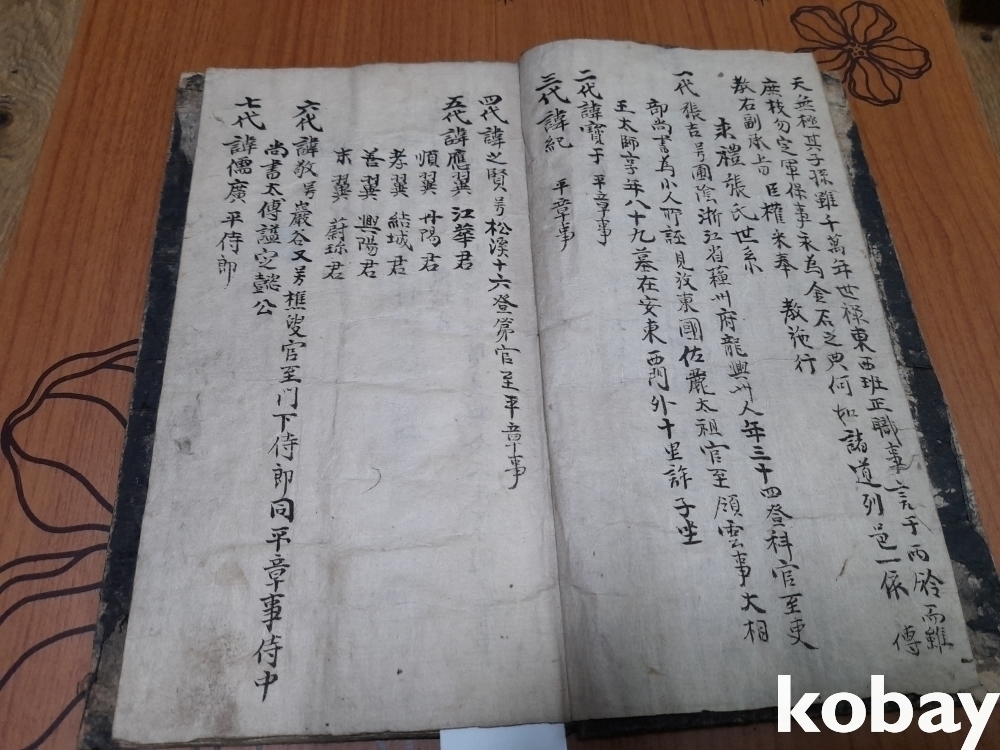 天無極其子孫雖千萬年世祿東西班正職事言于兩 而雖
庶枝勿定軍保事永為金石之典何如諸道列邑一依 傳
教右副承旨臣權 奉 教施行
求禮張氏世系
一代 張吉号圃陰浙江省蘇州府龍興 人年三十四登科官至吏
部尚書為小人所誣見放東國佐麗太祖官至領雲事大相
王太師享年八十九墓在安東西門外十里許子坐
二代諱寶子 平章事
三代 諱紀 平章事
四代 諱之賢号松溪十六登第官至平章事
五代 諱應翼 江華君
順翼 丹陽君
孝翼 結城君
善翼 興陽君
末翼 蔚珍君
六代 諱敬号巖谷又号樵叟官至門下侍郎同平章事侍中
尚書太傅諡定懿公
七代 諱儒廣平侍郎
kobay